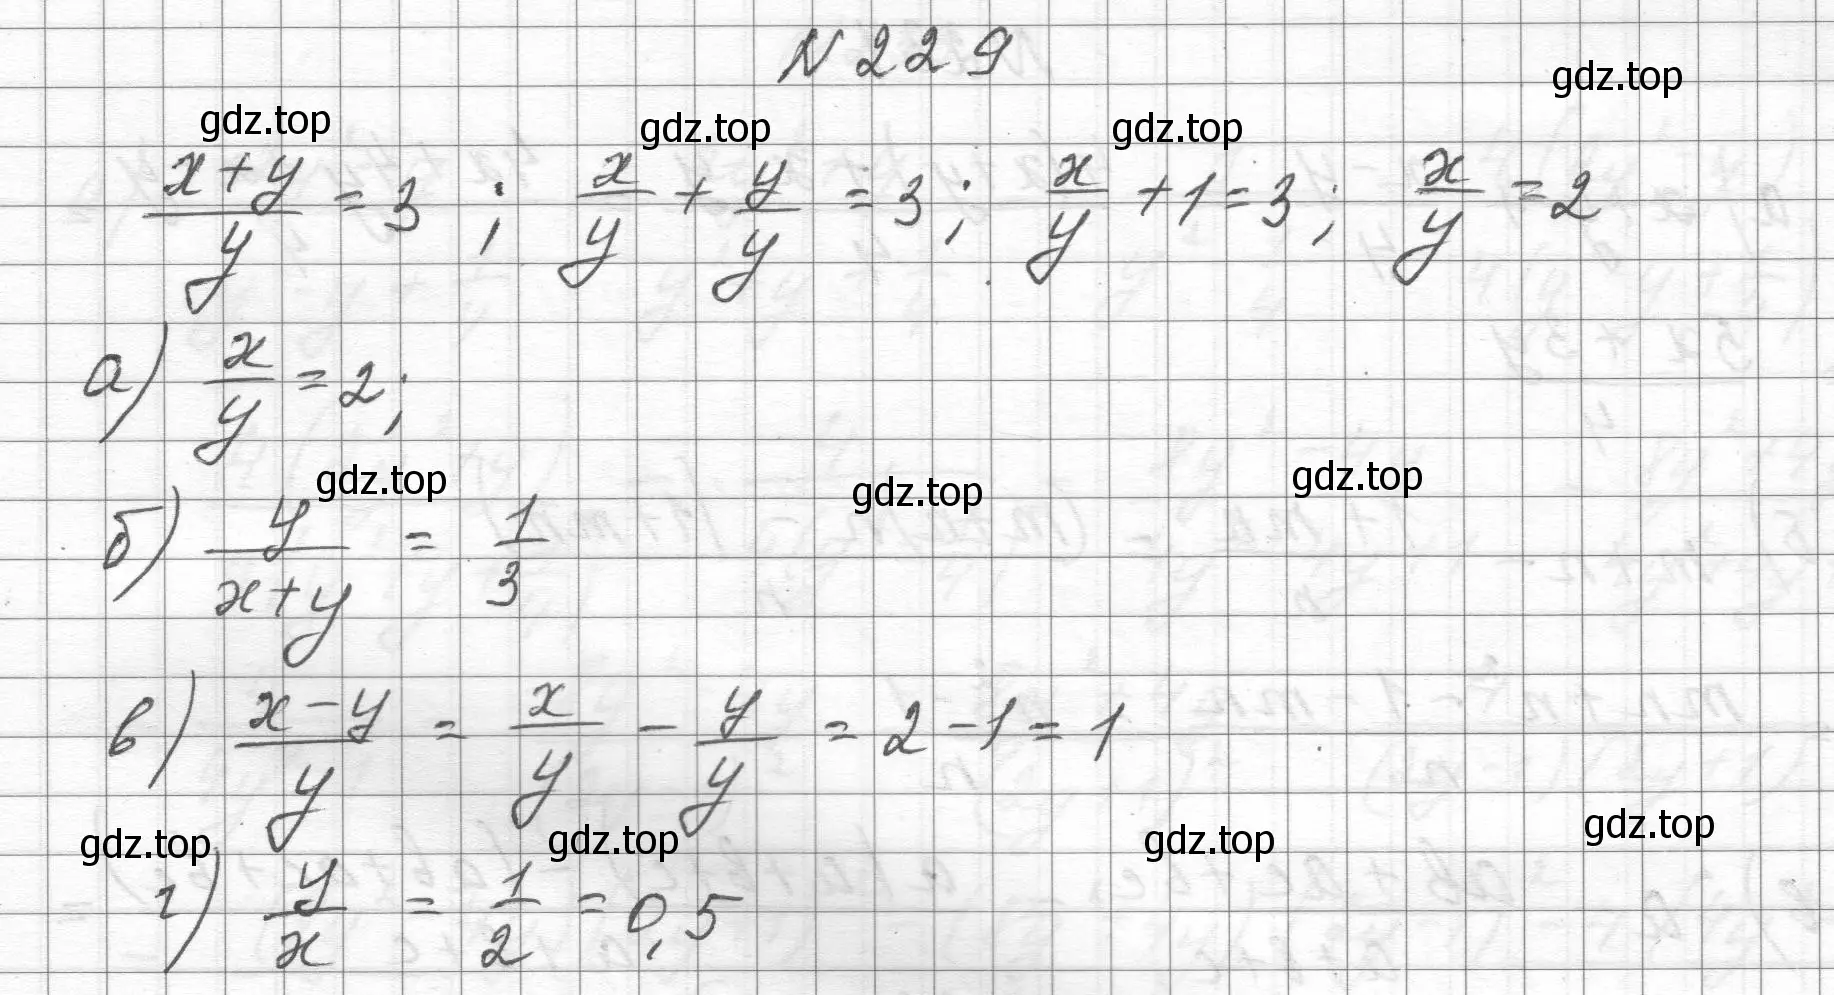 N 229
gdz.top
gdz.top gdz.top gdz.top
(x+y)/y = 3 ; x/y + y/y = 3 ; x/y + 1 = 3 ; x/y = 2
а) x/y = 2 ;
gdz.top gdz.top gdz.top
б) y/(x+y) = 1/3
в) (x-y)/y = x/y - y/y = 2 - 1 = 1
gdz.top gdz.top gdz.top gdz.top
г) y/x = 1/2 = 0,5